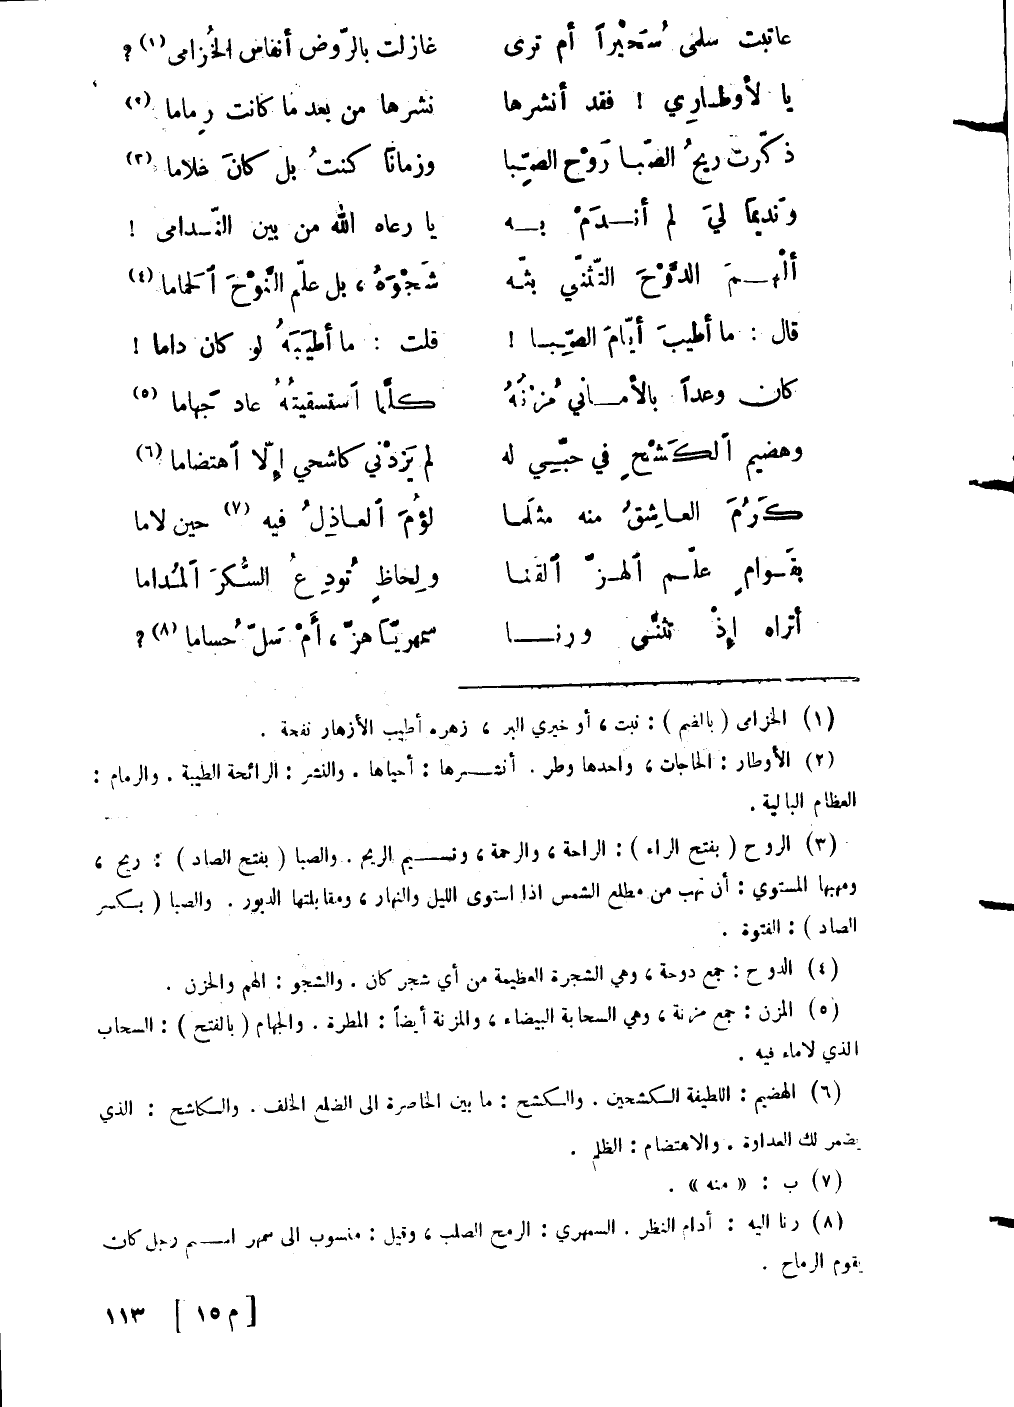 عاتبت سلمى سُحَيْراً أم ترى غازلت بالرّوض أنفاس الخُزامى (١) ؟
يا لأوطاري ! فقد أنشرها نشرها من بعد ما كانت رِماما (٢)
ذكّرت ريحُ الصَّبا رَوْح الصِّبا وزمانًا كنتُ بل كانَ غلاما (٣)
ونَديمًا ليَ لم أندَمْ به يا رعاه الله من بين النّدامى !
ألْهمَ الدَّوْحَ التّثنّي بثّه شَجْوَهُ ، بل علّم النَّوْحَ ٱلحَماما (٤)
قال : ما أطيبَ أيّامَ الصِّبا ! قلت : ما أطيَبَهُ لو كان داما !
كان وعداً بالأماني مُزْنُهُ كلَّما ٱستسقيتُهُ عاد جَهاما (٥)
وهضيم ٱلكَشْحِ في حبّيي له لم يَزدْني كاشحي إلّا ٱهتضاما (٦)
كَرُمَ العاشِقُ منه مثلَما لؤُمَ ٱلعاذِلُ فيه (٧) حين لاما
بقَوامٍ علّم ٱلهزَّ ٱلقنا ولِحاظٍ تُودِعُ السُّكرَ ٱلمُداما
أتُراه إذْ تثنَّى ورنا سمهريًّا هزّ ، أَمْ سَلّ حُساما (٨) ؟
(١) الخزامى ( بالضم ) : نبت ، أو خيري البر ، زهره أطيب الأزهار نفحة .
(٢) الأوطار : الحاجات ، واحدها وطر . أنشرها : أحياها . والنشر : الرائحة الطيبة . والرمام :
العظام البالية .
(٣) الروح ( بفتح الراء ) : الراحة ، والرحمة ، ونسيم الريح . والصبا ( بفتح الصاد ) : ريح ،
ومهبها المستوي : أن تهب من مطلع الشمس اذا استوى الليل والنهار ، ومقابلتها الدبور . والصبا ( بكسر
الصاد ) : الفتوة .
(٤) الدوح : جمع دوحة ، وهي الشجرة العظيمة من أي شجر كان . والشجو : الهم والحزن .
(٥) المزن : جمع مزنة ، وهي السحابة البيضاء ، والمزنة أيضاً : المطرة . والجهام ( بالفتح ) : السحاب
الذي لا ماء فيه .
(٦) الهضيم : اللطيفة الكشحين . والكشح : ما بين الخاصرة الى الضلع الخلف . والكاشح : الذي
يضمر لك العداوة . والاهتضام : الظلم .
(٧) ب : « منه » .
(٨) رنا اليه : أدام النظر . السمهري : الرمح الصلب ، وقيل : منسوب الى سمهر اسم رجل كان
يقوم الرماح .
[ م ١٥ ] ١١٣